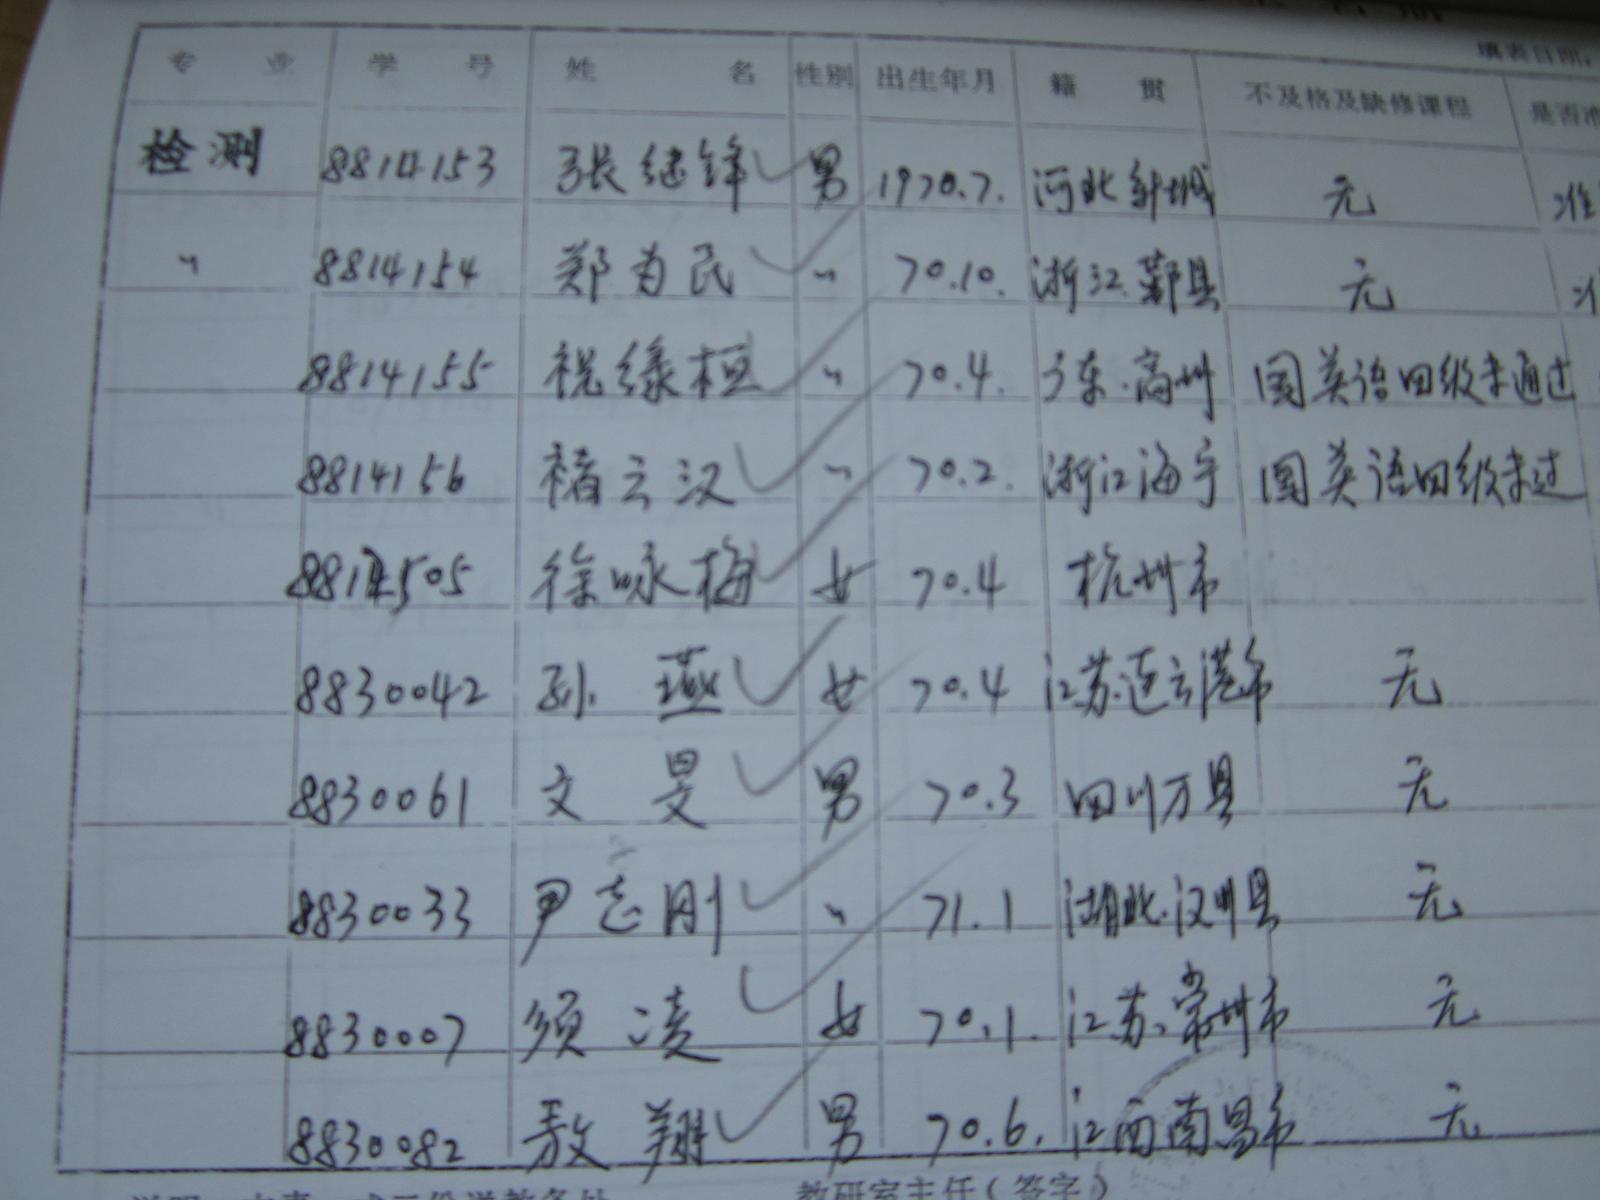 填表日期
专 业 学 号 姓 名 性别 出生年月 籍 贯 不及格及缺修课程 是否准
检测 8814153 张继锋 男 1970.7. 河北 无 准
〃 8814154 郑为民 〃 70.10. 浙江.鄞县 无
8814155 祝缘桓 〃 70.4. 广东.高州 国英语四级未通过
8814156 褚云汉 〃 70.2. 浙江海宁 国英语四级未过
8814505 徐咏梅 女 70.4 杭州市
8830042 孙 燕 女 70.4 江苏.连云港市 无
8830061 文 旻 男 70.3 四川万县 无
8830033 尹志刚 〃 71.1 湖北.汉川县 无
8830007 须 凌 女 70.1. 江苏、常州市 无
8830082 敖 翔 男 70.6. 江西南昌市 无
教研室主任(签字)